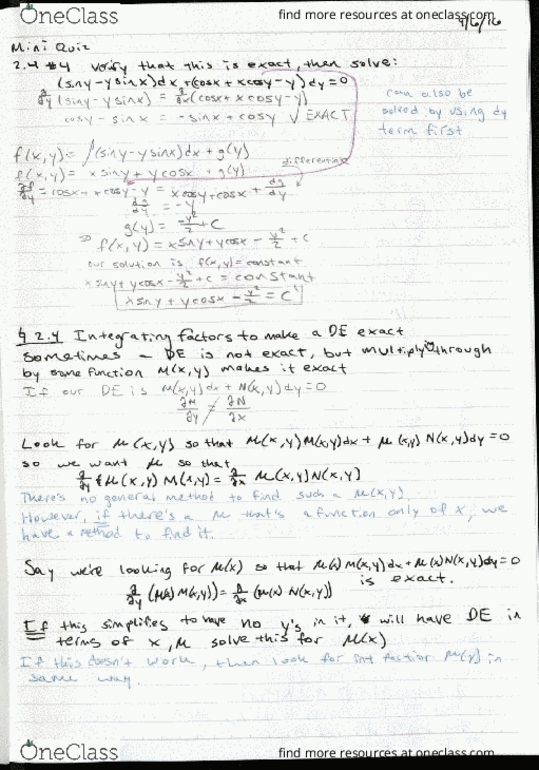 OneClass find more resources at oneclass.com
Mini Quiz
2.4 #4 verify that this is exact, then solve:
(siny-ysinx)dx+(cosx+xcosy-y)dy=0
∂/∂y(siny-ysinx) = ∂/∂x(cosx+xcosy-y)
cosy-sinx = -sinx+cosy √ EXACT
can also be
solved by using dy
term first
f(x,y)=∫(siny-ysinx)dx+g(y)
differentiate
f(x,y)= xsiny+ycosx+g(y)
∂f/∂y=cosx+xcosy-y = xcosy+cosx+dg/dy
dg/dy = -y
g(y)= -y²/2+C
so f(x,y)=xsiny+ycosx-y²/2+C
our solution is f(x,y)=constant
xsiny+ycosx-y²/2+C=constant
xsiny+ycosx-y²/2=C
§2.4 Integrating factors to make a DE exact
Sometimes a DE is not exact, but multiplying through
by some function M(x,y) makes it exact
If our DE is M(x,y)dx+N(x,y)dy=0
∂M/∂y ≠ ∂N/∂x
Look for μ(x,y) so that μ(x,y)M(x,y)dx+μ(x,y)N(x,y)dy=0
so we want μ so that
∂/∂y μ(x,y)M(x,y)=∂/∂x μ(x,y)N(x,y)
There's no general method to find such a μ(x,y).
However, if there's a μ that's a function only of x, we
have a method to find it.
Say we're looking for μ(x) so that μ(x)M(x,y)dx+μ(x)N(x,y)dy=0
is exact.
∂/∂y(μ(x)M(x,y))=∂/∂x(μ(x)N(x,y))
If this simplifies to have no y's in it, will have DE in
terms of x,μ solve this for μ(x)
If this doesn't work, then look for int factior μ(y) in
same way.
OneClass find more resources at oneclass.com